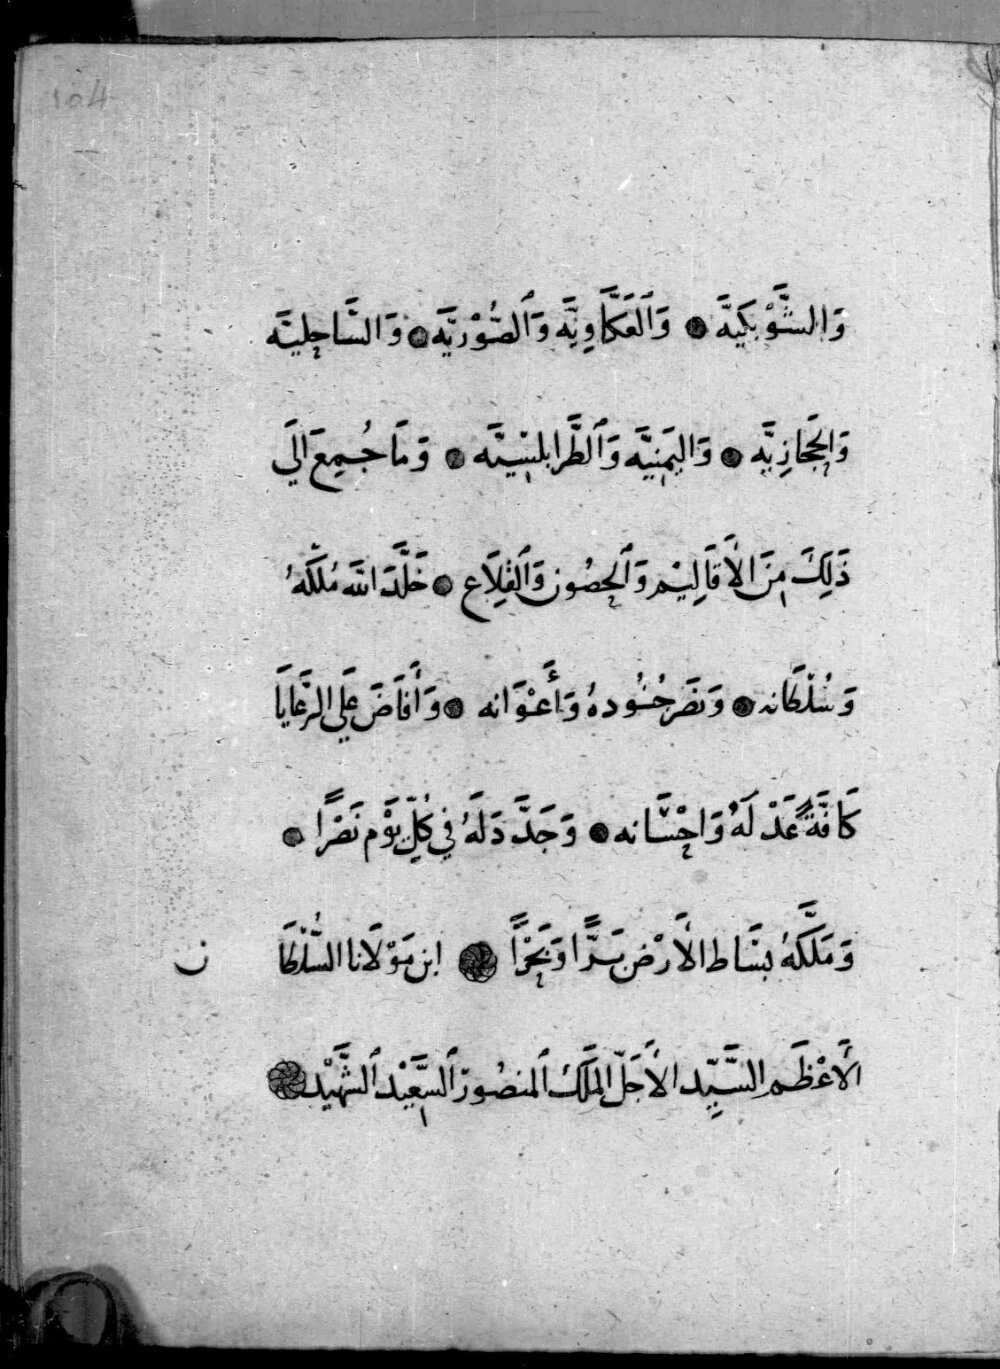 104
وَالشَّوْبَكِيَّه ● وَٱلْعَكَّاوِيَّه وَٱلصُّوْرِيَّه ● وَالسَّاحِليَّه
وَالحَجَازِيَّه ● وَاليَمَنِيَّه وَٱلطَّرابلسِيَّه ● وَمَا جُمِعَ الَي
ذَلِكَ مِنَ الأَقَالِيْم وَٱلحصُون وَٱلقِلَاع ● خَلَّدَ الله مُلْكَهُ
وَسُلْطَانه ● وَنَصَر جُنُودهُ وَأَعْوَانه ● وَأَفَاضَ عَلَي الرَّعَايَا
كَافَّةً عَدْلَهُ وَاحْسَانه ● وَجَدَّدَ لَهُ فِي كُلِّ يَوْم نَصْرًا ●
وَمَلَّكَهُ بسَاط الأَرْض بَرًّا وَبَحْرًا ابن مَوْلَانا السُّلْطَان
الأَعْظَم السَّيِّد الأَجَلّ المَلَكُ ٱلمنصُورْ ٱلسَّعَيْد ٱلشَّهَيْد